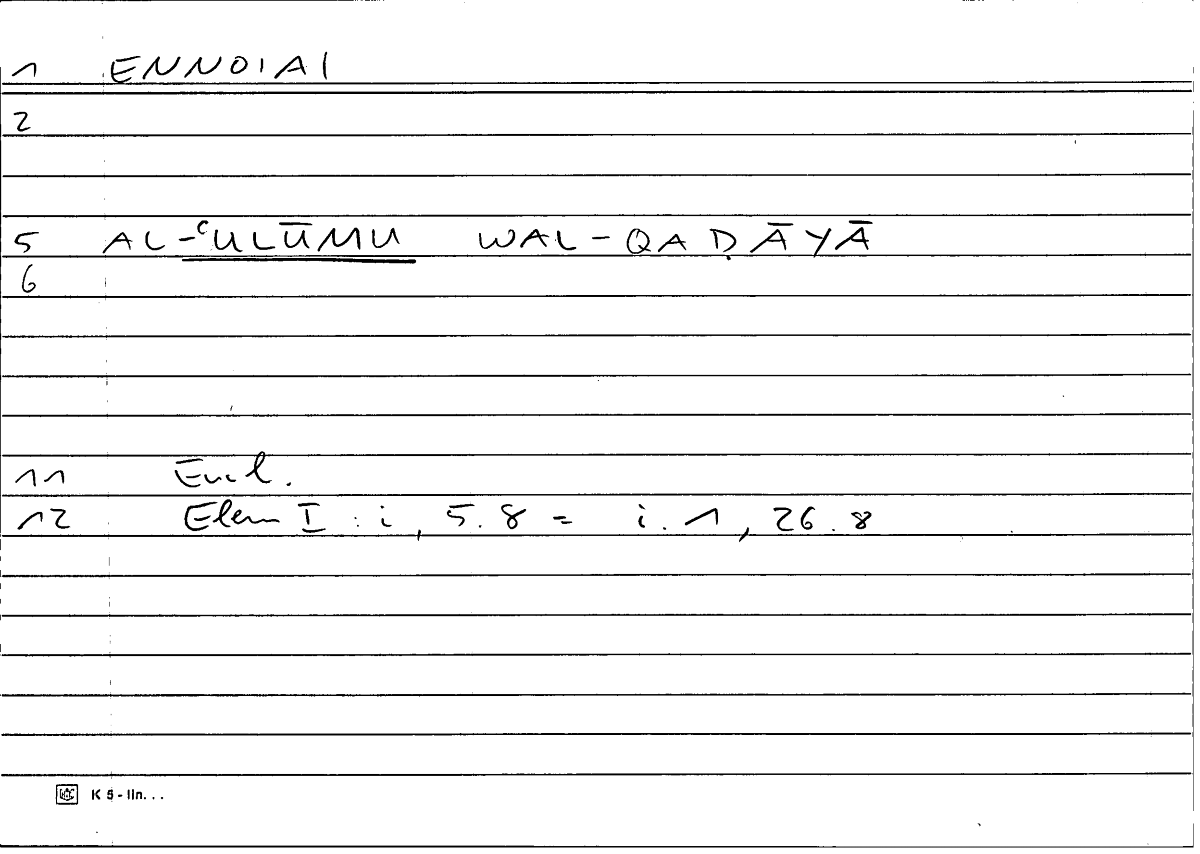 1 ENNOIAI
2
5 AL-ʿULŪMU WAL-QAḌĀYĀ
6
11 Eucl.
12 Elem I : i, 5.8 = i.1, 26.8
K 5 - lin. . .